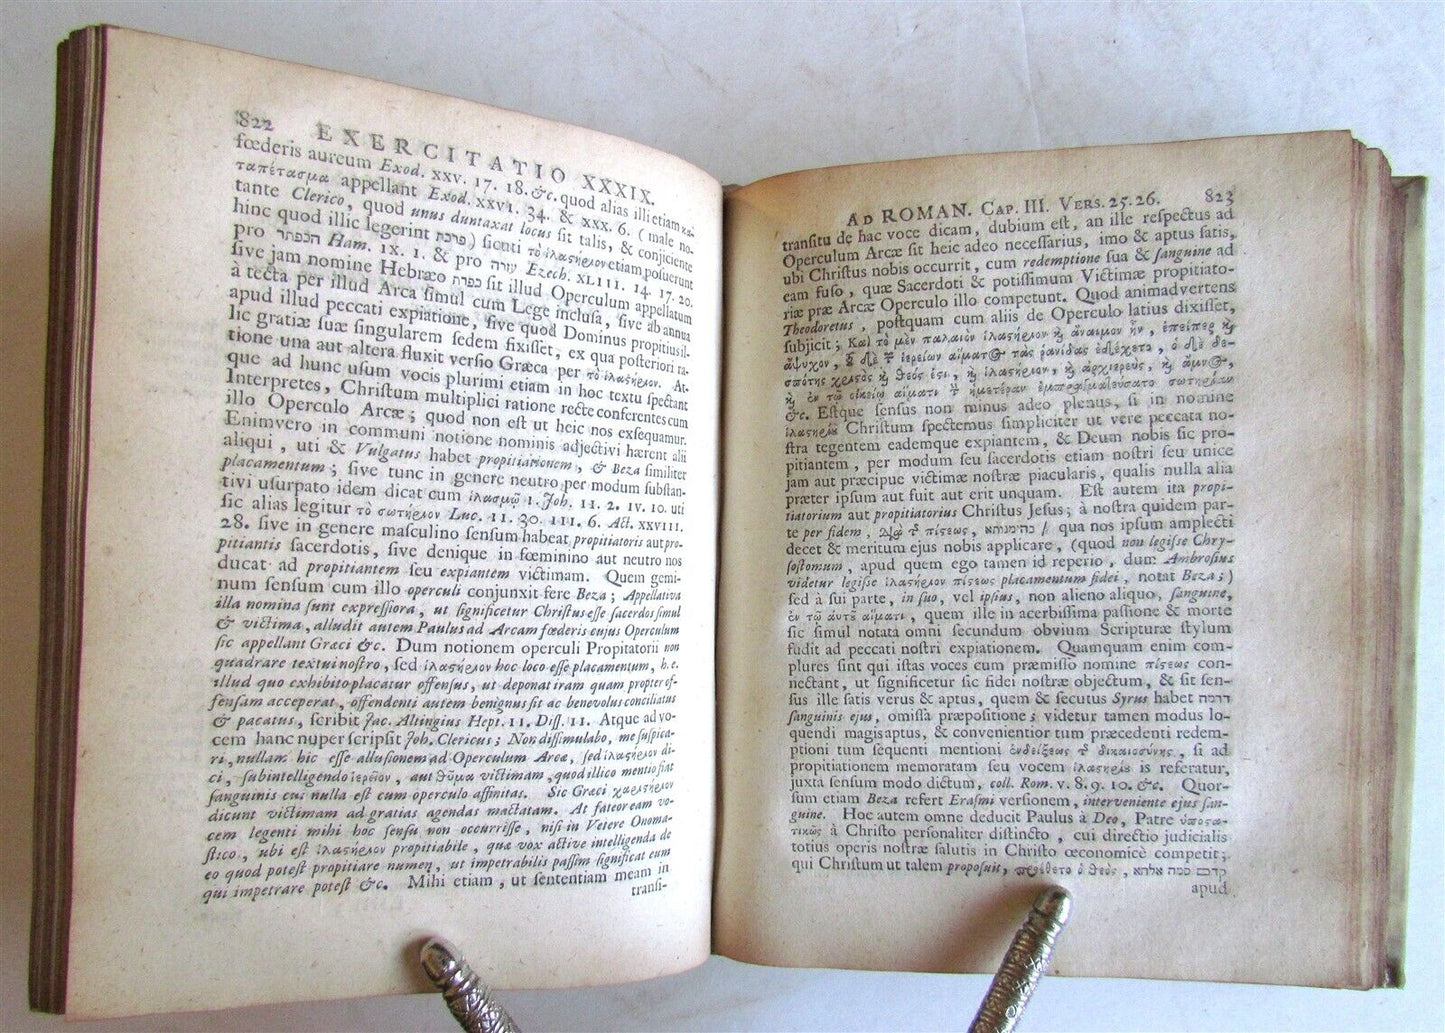 822 EXERCITATIO XXXIX.
fœderis aureum Exod. xxv. 17. 18. &c. quod alias illi etiam κα-
ταπέτασμα appellant Exod. xxvi. 34. & xxx. 6. (male no-
tante Clerico, quod unus duntaxat locus sit talis, & conjiciente
hinc quod illic legerint פרכת) sicuti τὸ ἱλαστήριον etiam posuerunt
pro הכפתר Ham. ix. 1. & pro עזרה Ezech. xliii. 14. 17. 20.
sive jam nomine Hebræo כפרת sit illud Operculum appellatum
à tecta per illud Arca simul cum Lege inclusa, sive ab annua
apud illud peccati expiatione, sive quod Dominus propitius il-
lic gratiæ suæ singularem sedem fixisset, ex qua posteriori ra-
tione una aut altera fluxit versio Græca per τὸ ἱλαστήριον. At-
que ad hunc usum vocis plurimi etiam in hoc textu spectant
Interpretes, Christum multiplici ratione recte conferentes cum
illo Operculo Arcæ; quod non est ut heic nos exsequamur.
Enimvero in communi notione nominis adjectivi hærent alii
aliqui, uti & Vulgatus habet propitiationem, & Beza similiter
placamentum; sive tunc in genere neutro per modum substan-
tivi usurpato idem dicat cum ἱλασμῷ 1. Joh. ii. 2. iv. 10. uti
sic alias legitur τὸ σωτήριον Luc. ii. 30. iii. 6. Act. xxviii.
28. sive in genere masculino sensum habeat propitiatoris aut pro-
pitiantis sacerdotis, sive denique in fœminino aut neutro nos
ducat ad propitiantem seu expiantem victimam. Quem gemi-
num sensum cum illo operculi conjunxit fere Beza; Appellativa
illa nomina sunt expressiora, ut significetur Christus esse sacerdos simul
& victima, alludit autem Paulus ad Arcam fœderis cujus Operculum
sic appellant Græci &c. Dum notionem operculi Propitatorii non
quadrare textui nostro, sed ἱλαστήριον hoc loco esse placamentum, h. e.
illud quo exhibito placatur offensus, ut deponat iram quam propter of-
fensam acceperat, offendenti autem benignus sit ac benevolus conciliatus
& pacatus, scribit Jac. Altingius Hept. ii. Diss. ii. Atque ad vo-
cem hanc nuper scripsit Joh. Clericus; Non dissimulabo, me suspica-
ri, nullam hic esse allusionem ad Operculum Arcæ, sed ἱλαστήριον di-
ci, subintelligendo ἱερεῖον, aut θῦμα victimam, quod illico mentio fiat
sanguinis cui nulla est cum operculo affinitas. Sic Græci χαριστήριον
dicunt victimam ad gratias agendas mactatam. At fateor eam vo-
cem legenti mihi hoc sensu non occurrisse, nisi in Vetere Onoma-
stico, ubi est ἱλαστήριον propitiabile, quæ vox active intelligenda de
eo quod potest propitiare numen, ut impetrabilis passim significat eum
qui impetrare potest &c. Mihi etiam, ut sententiam meam in
transi-
AD ROMAN. CAP. III. VERS. 25. 26. 823
transitu de hac voce dicam, dubium est, an ille respectus ad
Operculum Arcæ sit heic adeo necessarius, imo & aptus satis,
ubi Christus nobis occurrit, cum redemptione sua & sanguine ad
eam fuso, quæ Sacerdoti & potissimum Victimæ propitiato-
riæ præ Arcæ Operculo illo competunt. Quod animadvertens
Theodoretus, postquam cum aliis de Operculo latius dixisset,
subjicit; Καὶ τὸ μὲν παλαιὸν ἱλαστήριον ϗ ἄναιμον ἦν, ἐπείπερ ϗ
ἄψυχον, ϗ δὲ τ̃ ἱερείων αἵματ(ος) τὰς ῥανίδας ἐδέχετο, ὁ δὲ δε-
σπότης χριστὸς ϗ θεός ἐστι, ϗ ἱλαστήριον, ϗ ἀρχιερεὺς, ϗ ἀμνὸς,
ϗ ἐν τῷ οἰκείῳ αἵματι τ̃ ἡμετέραν ἐπραγματεύσατο σωτηρίαν
&c. Estque sensus non minus adeo plenus, si in nomine
ἱλαστηρίȣ Christum spectemus simpliciter ut vere peccata no-
stra tegentem eademque expiantem, & Deum nobis sic pro-
pitiantem, per modum seu sacerdotis etiam nostri seu unice
jam aut præcipue victimæ nostræ piacularis, qualis nulla alia
præter ipsum aut fuit aut erit unquam. Est autem ita propi-
tiatorium aut propitiatorius Christus Jesus; à nostra quidem par-
te per fidem, διὰ τ̃ πίστεως, בהימנותא / qua nos ipsum amplecti
decet & meritum ejus nobis applicare, (quod non legisse Chry-
sostomum, apud quem ego tamen id reperio, dum Ambrosius
videtur legisse ἱλαστήριον πίστεως placamentum fidei, notat Beza;)
sed à sui parte, in suo, vel ipsius, non alieno aliquo, sanguine,
ἐν τῷ αὐτȣ̃ αἵματι, quem ille in acerbissima passione & morte
sic simul notata omni secundum obvium Scripturæ stylum
fudit ad peccati nostri expiationem. Quamquam enim com-
plures sint qui istas voces cum præmisso nomine πίστεως con-
nectant, ut significetur sic fidei nostræ objectum, & sit sen-
sus ille satis verus & aptus, quem & secutus Syrus habet דדמה
sanguinis ejus, omissa præpositione; videtur tamen modus lo-
quendi magis aptus, & convenientior tum præcedenti redem-
ptioni tum sequenti mentioni ἐνδείξεως τ̃ δικαιοσύνης, si ad
propitiationem memoratam seu vocem ἱλαστηρίȣ is referatur,
juxta sensum modo dictum, coll. Rom. v. 8. 9. 10. &c. Quor-
sum etiam Beza refert Erasmi versionem, interveniente ejus san-
guine. Hoc autem omne deducit Paulus à Deo, Patre ὑποστα-
τικῶς à Christo personaliter distincto, cui directio judicialis
totius operis nostræ salutis in Christo œconomicè competit;
qui Christum ut talem proposuit, προέθετο ὁ θεός, קדם סמה אלהא,
apud